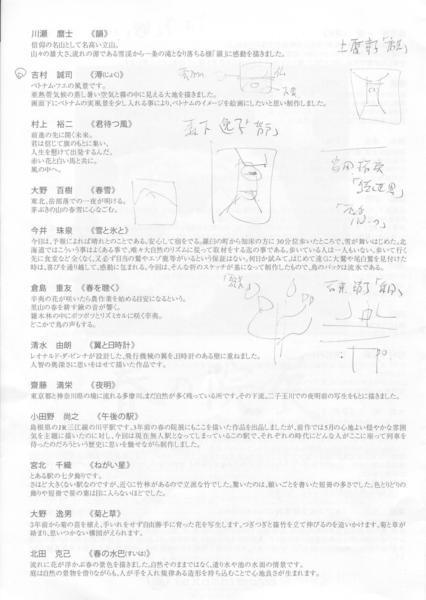 川瀬 麿士 《韻》
信仰の名山として名高い立山。
山々の雄大さ、流れの源である雪渓から一条の滝となり落ちる様「韻」に感動を描きました。
吉村 誠司 《濘(じょじ)》
ベトナム・フエの風景です。
亜熱帯気候の蒸し暑い空気と霧の中に見える大地を描きました。
画面下にベトナムの実風景を少し入れる事により、ベトナムのイメージを絵画にしたいと思い制作しました。
村上 裕二 《君待つ風》
前進の先に開く未来。
君は信じて旗のもとに集い、
人生を懸けて出発するんだ。
赤い花と白い馬と共に。
風の中へ。
大野 百樹 《春雪》
東北、岳部落での一夜が明ける。
茅ぶきの山の春雪に心なごむ。
今井 珠泉 《雪と氷と》
今日は、予報によれば晴れとのことである。安心して宿をでる。羅臼の町から知床の方に30分位歩いたところで、雪が舞いはじめた。北
海道ではこういう事はよくある事で、唯々大自然のリズムに従って取材をする迄の事である。歩いている人は一人もいない。歩いて行く
先に食堂など全くなく、又必ず目当の鷲やエゾ鹿等がいるという保証はない。何日か試みて、はじめて遠くに大鷲や尾白鷲を見付けた
時は、喜びを通り越して、感動に包まれる。今回は、そんな折のスケッチが基になって制作したもので、鳥のバックは流氷である。
倉島 重友 《春を聴く》
辛夷の花が咲いたら農作業を始める目安になるという。
里山の春を耕す鍬の音が響く。
雑木林の中にポツポツとリズミカルに咲く辛夷。
どこかで鳥の声もする。
清水 由朗 《翼と日時計》
レオナルド・ダ・ビンチが設計した、飛行機械の翼を、日時計のある壁に重ねました。
人智の奥深さに思いをはせて描いた作品です。
齋藤 満栄 《夜明》
東京都と神奈川県の境に流れる多摩川。まだ自然が多く残っている所です。その下流。二子玉川での夜明前の写生をもとに描きました。
小田野 尚之 《午後の駅》
島根県のJR三江線の川平駅です。3年前の春の院展にもここを描いた作品を出品しましたが、前作では5月の心地よい穏やかな雰囲
気を主題に描いたのに対し、今回は現在無人駅となってしまっているこの駅で、それぞれの時代にどんな人がここに座って列車を
待ったのだろうという歴史に思いを馳せながら制作しました。
宮北 千織 《ねがい星》
とある駅の七夕飾りです。
さほど大きくない駅なのですが、近くに竹林があるので立派な竹でした。驚いたのは、願いごとを書いた短冊の多さでした。色とりどりの
飾りや短冊で笹の葉は目に入らないほどでした。
大野 逸男 《菊と草》
3年前から菊の苗を植え、手いれをせず自由勝手に育った花を写生します。つぎつぎと篠竹を立て伸びるのを追いかけます。菊と草が
絡まり、思いつかない構図がえられます。
北田 克己 《春の水巴(すいは)》
流れに花が浮かぶ春の景色を描きました。自然そのままではなく、造り水や池の水面の情景です。
庭は自然の景物を借りながらも、人が手を入れ規律ある造形を持ち込むことで心地良さが生まれます。